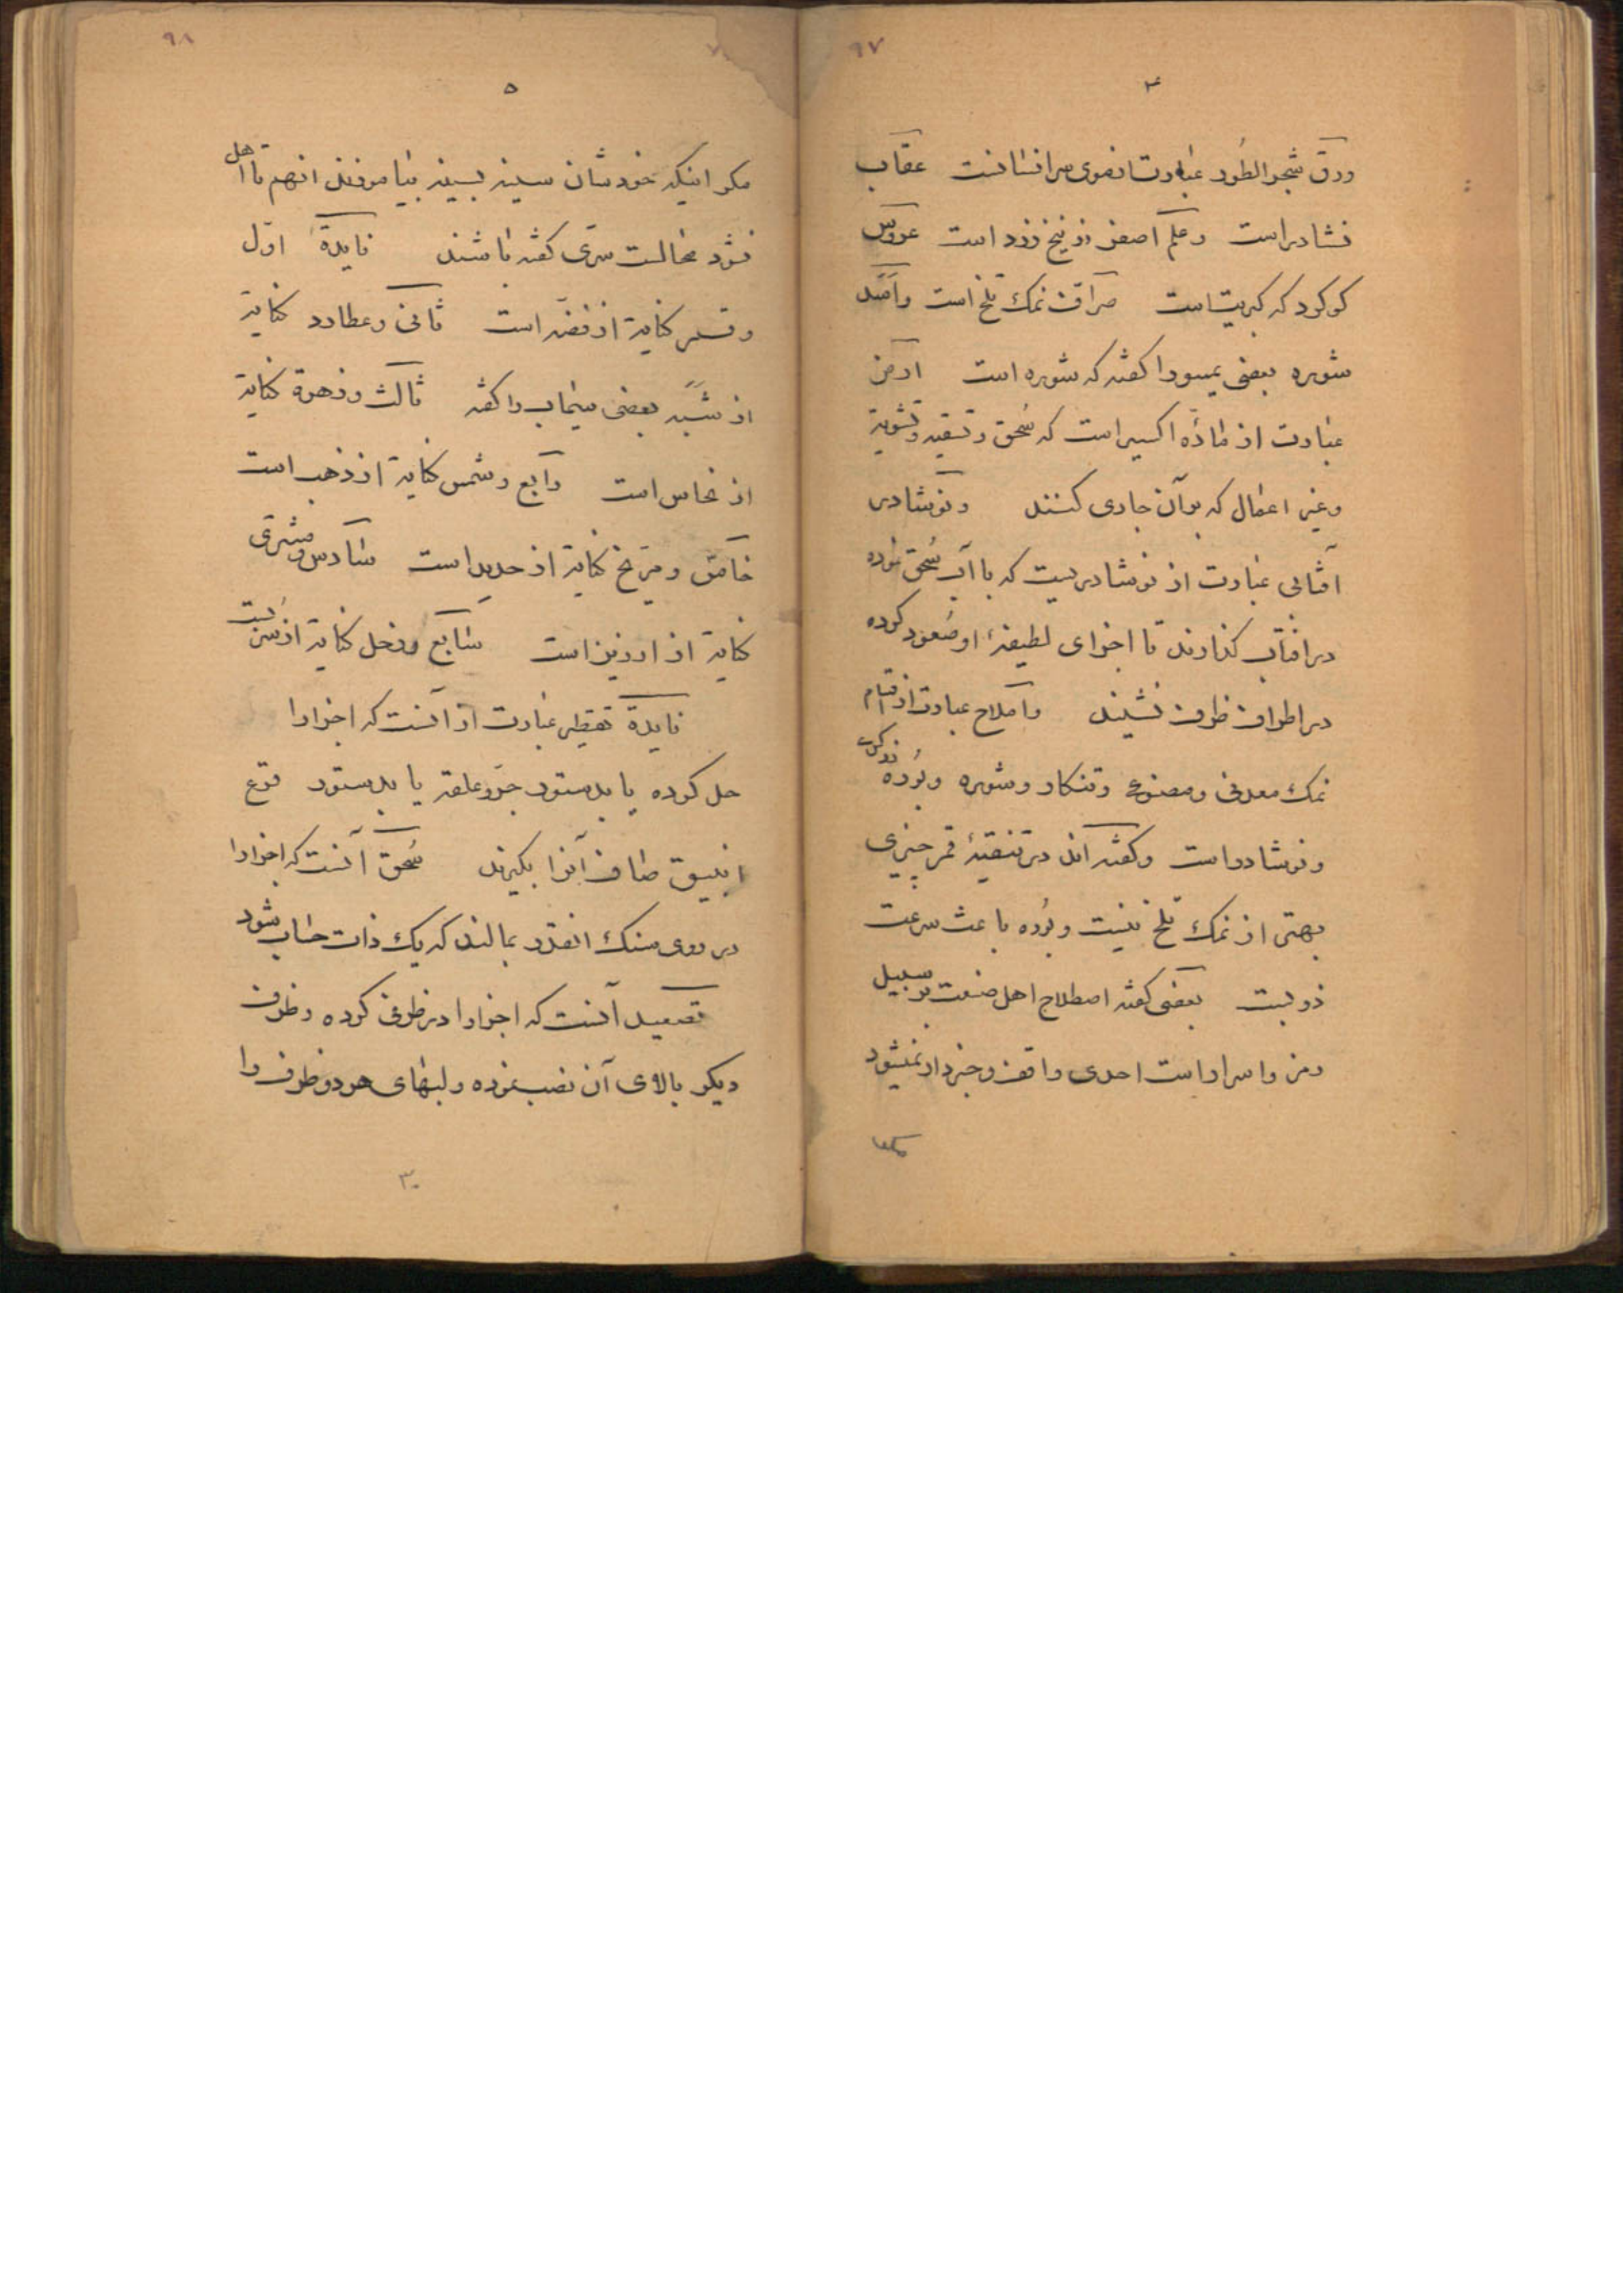 ۹۷
۴
ورق شجر الطور عبارت از موی سر انسانست عقاب
نشادر است و علم اصفر زرنیخ زرد است عروس
کوکرد که کبریتست صراف نمک تلخ است واسد
شوره بعضی را کفته که شوره است ارض
عبارت از ماده اکسیر است که سحق و تسقیه و تشویة
وغیر اعمال که بر آن جاری کنند ونوشادر
آفتابی عبارت از نوشادریست که با آب سحق نموده
در افتاب کذارند تا اجزای لطیفهٔ او صعود کرده
در اطراف ظرف نشیند واملاح عبارت از اقسام
نمک معدنی ومصنوعی وتنکار وشوره وبوره زرکری
ونوشادر است وکفته اند در تنقیهٔ قمر چیزی
بهتر از نمک تلخ نیست وبوره باعث سرعت
ذوبست بعضی کفته اصطلاح اهل صنعت بر سبیل
رمز واسرار است احدی واقف وخبردار نمیشود
۹۸
۵
مکر اینکه خودشان سینه بسینه بیاموزند انهم تا اهل
نشود محالست سری کفته باشند فایدة اول
وقمر کنایة از فضه است ثانی وعطارد کنایة
از شبه بعضی سیماب را کفته ثالث وزهرة کنایة
از نحاس است رابع وشمس کنایة از ذهب است
خامس ومریخ کنایة از حدید است سادس ومشتری
کنایة از ارزیز است سابع وزحل کنایة از سربست
فایدة تقطیر عبارت از آنست که اجزا را
حل کرده یا بدستور جر وعلقه یا بدستور قرع
انبیق صاف آنرا بکیرند سحق آنست که اجزا را
در روی سنک انقدر بمالند که یک ذات حساب شود
تصعید آنست که اجزا را در ظرفی کرده وظرف
دیکر بالای آن نصب نموده ولبهای هر دو ظرف را
۳۰